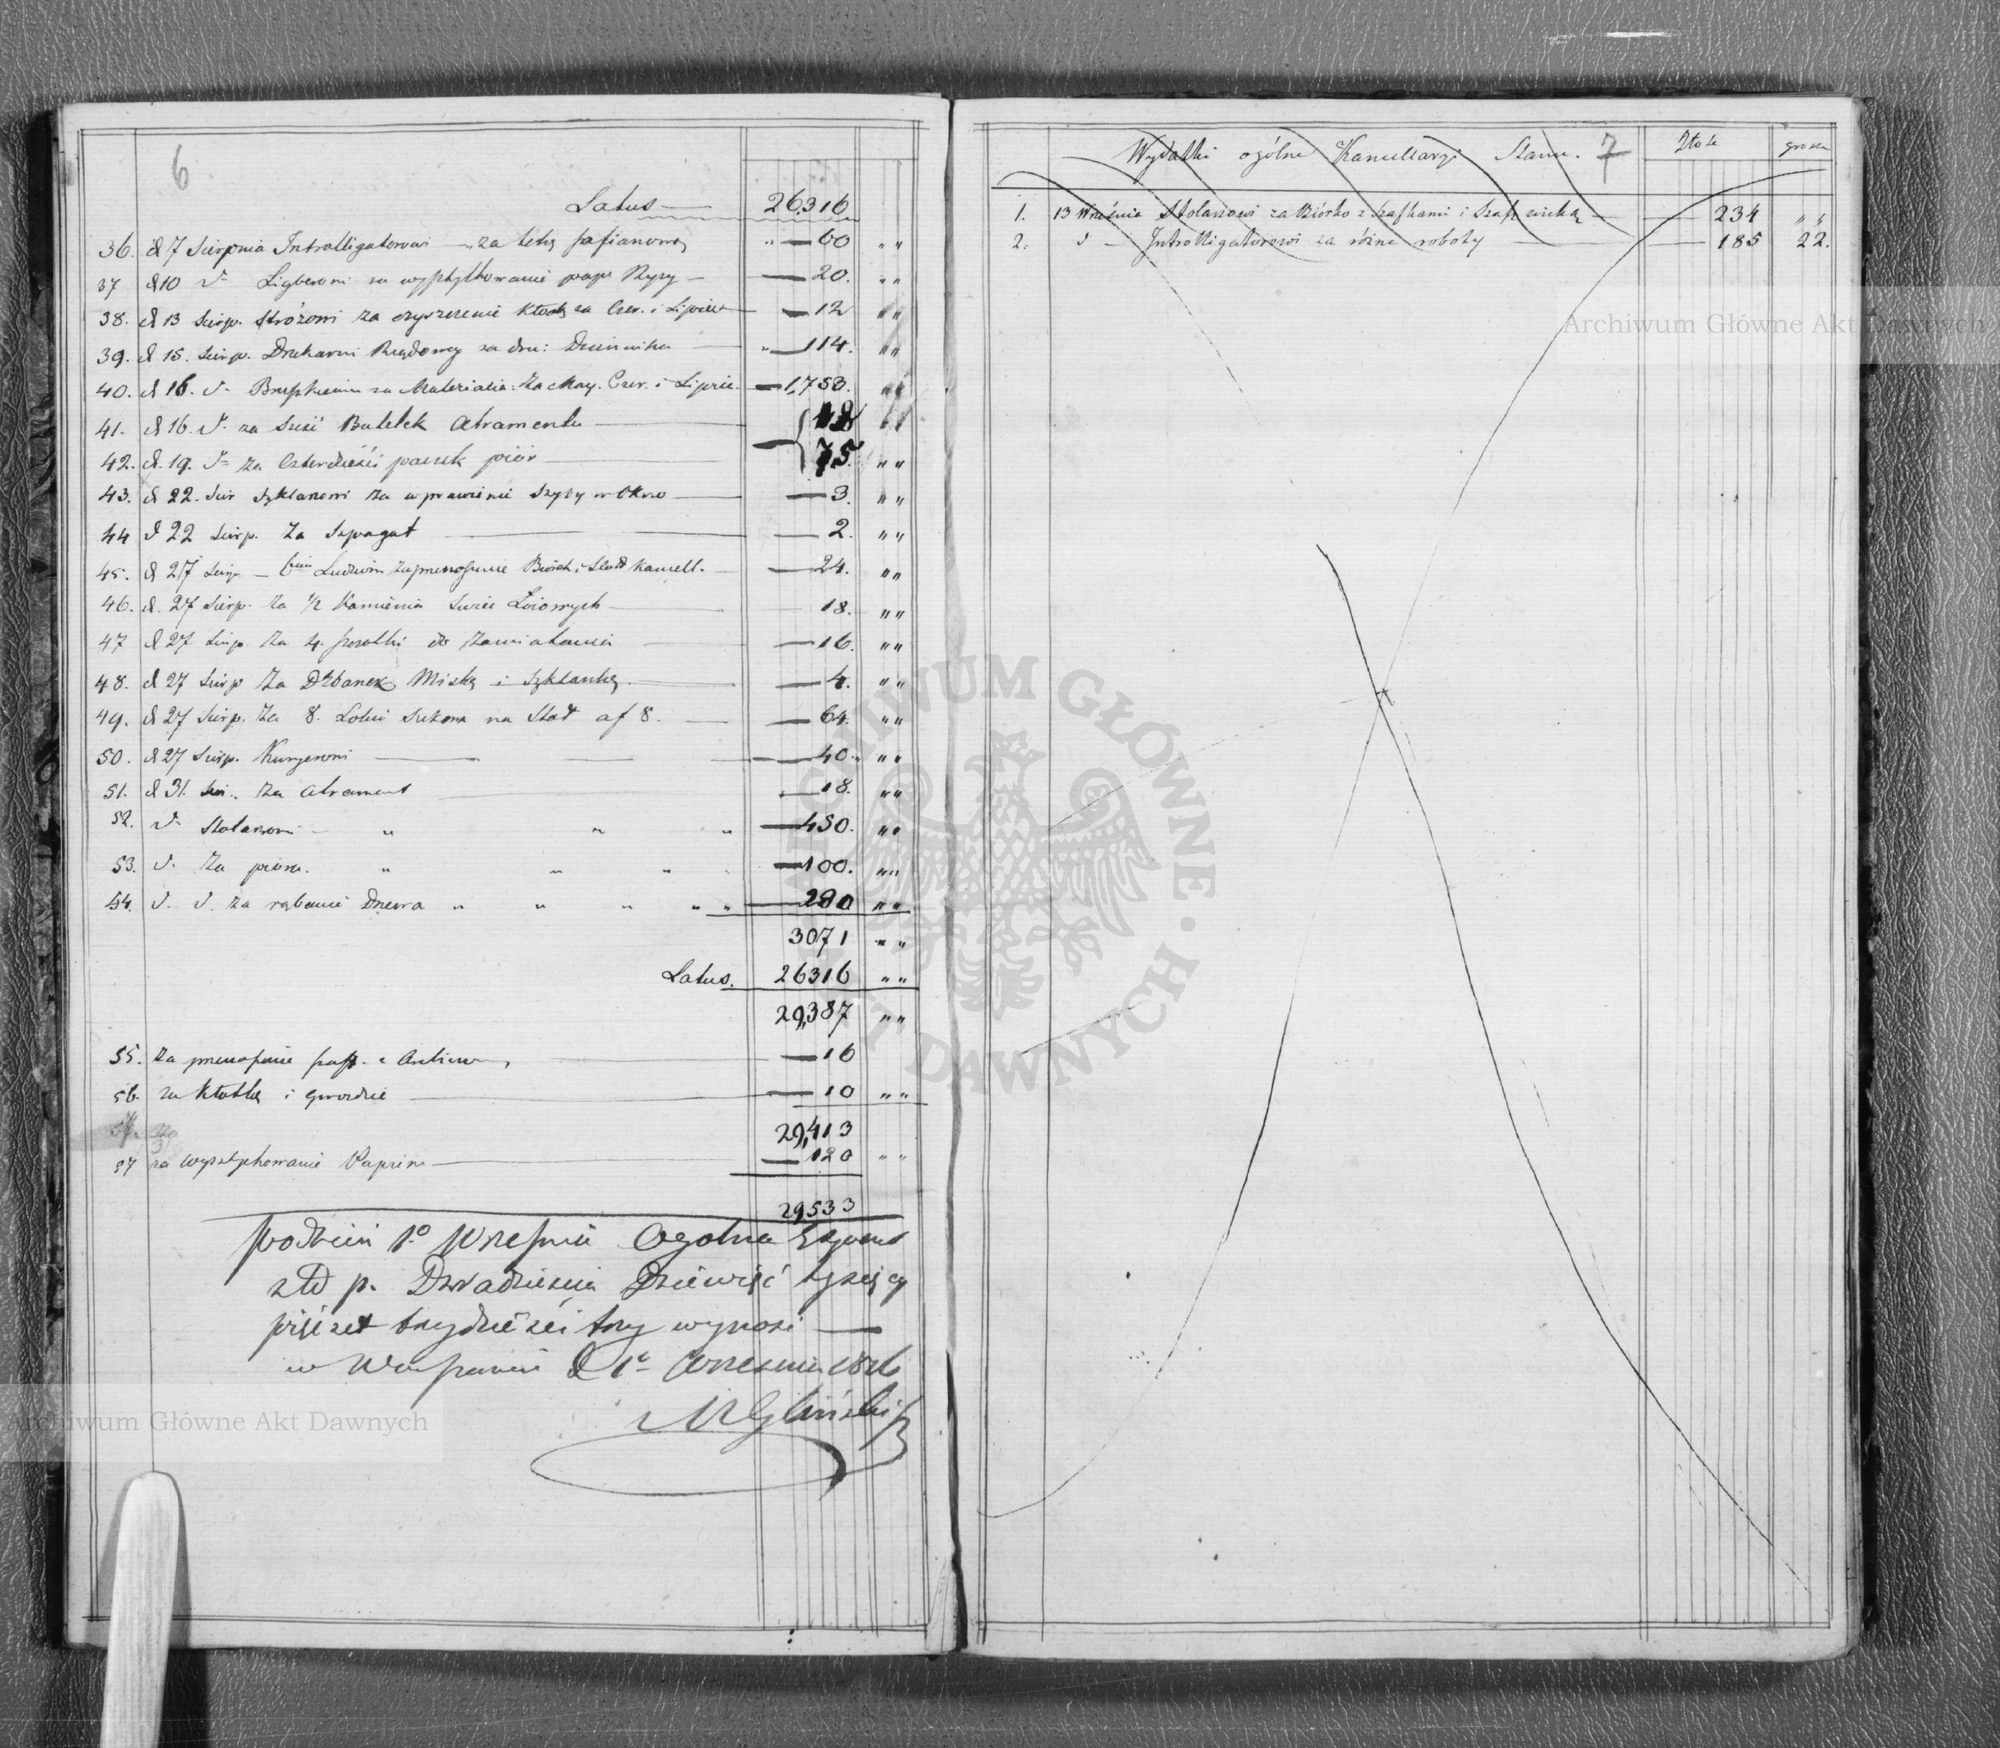 6
Latus — 26,316
36. d 7 Sierpnia Introlligatorowi — za tekę safianową — 60 " "
37 d 10 d- za wysztychowanie pap: — 20. " "
38. d 13 Sierp. Stróżowi za czyszczenie za Czer. i Lipiec — 12 " "
39. d 15. Sierp. Drukarni Rządowey za dru: Dziennika — 114. " "
40. d 16. d- za Materialia: za May. Czer. i Lipiec. — 1,758. " "
41. d 16. d- za sześć Butelek Atramentu — 18 " "
42. d. 19. d- za Czterdzieści paczek piór — 75. " "
43. d 22. Sier Szklarzowi za wprawienie szyby w okno — 3. " "
44 d 22 Sierp. za Szpagat — 2. " "
45. d 27 Sierp — Ludziom za przenoszenie Biórek i Kancell. — 24. " "
46. d. 27 Sierp. za 1/2 Kamienia Swiec Łoiowych — 18. " "
47 d 27 Sierp. za 4. szczotki do zamiatania — 16. " "
48. d 27 Sierp za Dzbanek Miskę i szklankę — 4. " "
49. d 27 Sierp. za 8. Łokci Sukna na Stół af 8. — 64. " "
50. d 27 Sierp. — 40. " "
51. d 31. Sier. za Atrament — 18. " "
52. d- Stolarzowi — " " " — 450. " "
53. d- za pióra. " " " — 100. " "
54. d- d- za rąbanie Drzewa " " " " " — 280 " "
3071 " "
Latus. 26316 " "
29,387 " "
55. za przenoszenie szaf. z — 16
56. za Kłotkę i gwozdzie — 10 " "
29,413
57 za wysztychowanie Papieru — 120 " "
29,533
podzień 1o Wrzesnia Ogolna
złł p. Dwadzieścia Dziewięć tysięcy
pięćset trzydzieści trzy wynosi —
w Warszawie d 1o Wrzesnia
MGliński
Wydatki ogólne Kancellaryi Stanu. 7 Złote grosze
1. 13 Września Stolarzowi za Biórko z szafkami i szafę wielką — 234 " "
2. d — Introlligatorowi za różne roboty — 185 22.
Archiwum Główne Akt Dawnych
ARCHIWUM GŁÓWNE AKT DAWNYCH
Archiwum Główne Akt Dawnych